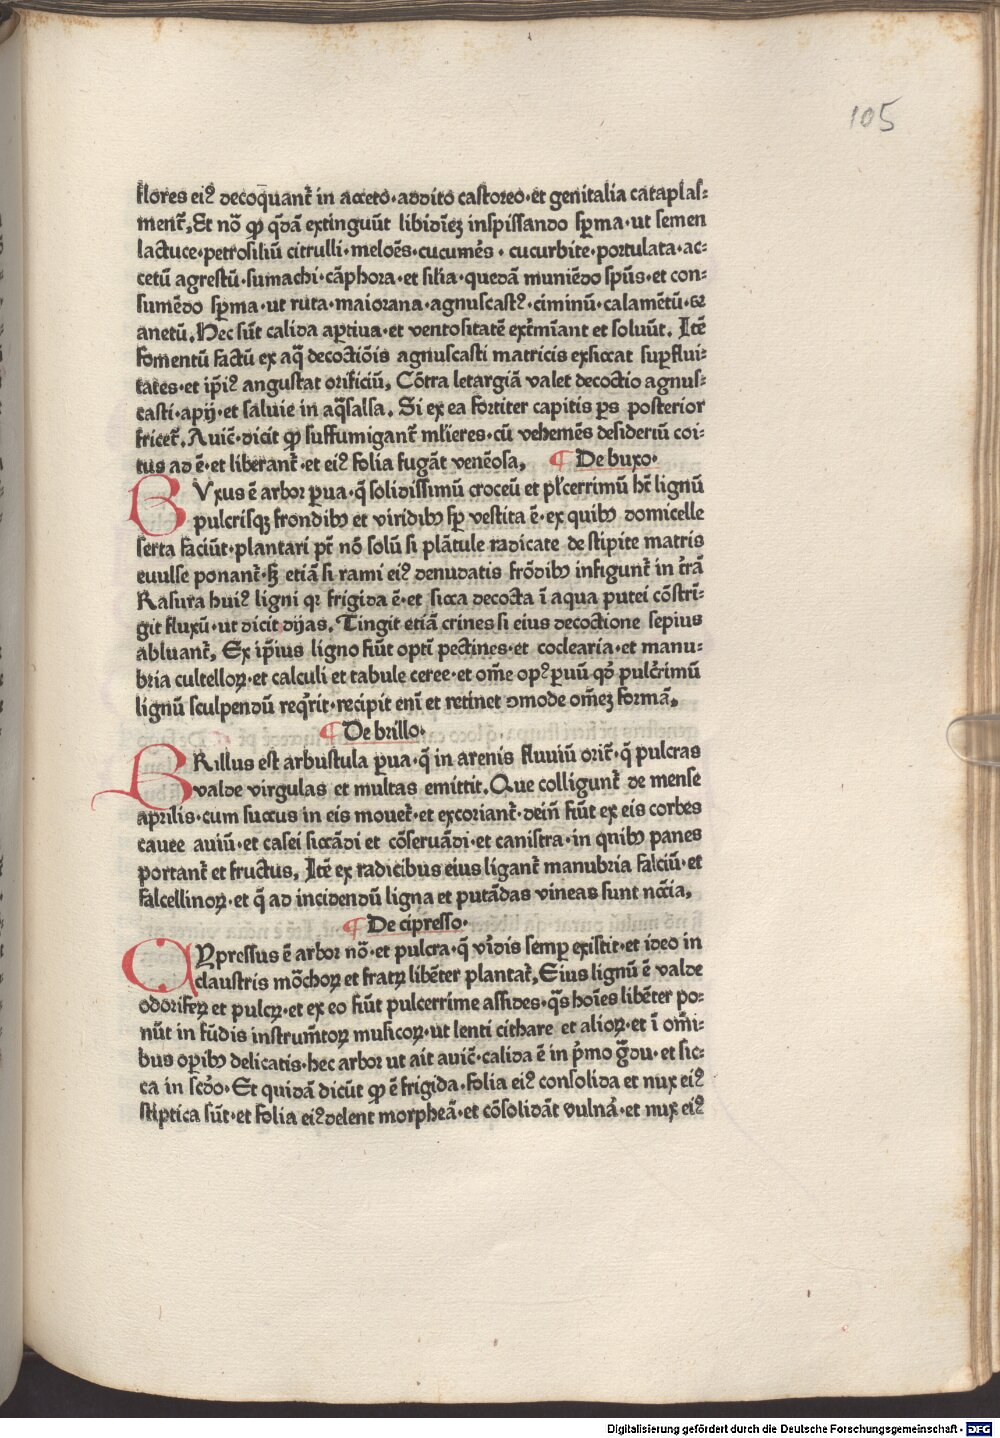 105
flores ei⁹ decoq̄uant᷑ in acceto·addito castoreo·et genitalia cataplas⸗
ment᷑. Et nō ꝙ q̄dā extinguūt libidīeꝫ inspissando sꝑma·ut semen
lactuce·petrosiliū citrulli·meloēs·cucumēs·cucurbite·portulata·ac⸗
cetū agrestū·sumachi·cāphora·et silia·quedā muniēdo spūs·et con⸗
sumēdo sꝑma·ut ruta·maiorana·agnuscast⁹·ciminū·calamētū·et
anetū. Hec sūt calida aꝑtiua·et ventositatē ext᷑mīant et soluūt. Itē
fomentū factū ex aq̄ decoctiōis agnuscasti matricis exsiccat suꝑflui⸗
tates·et ip̄i⁹ angustat orificiū. Cōtra letargiā valet decoctio agnus⸗
casti·apij·et saluie in aq̄salsa. Si ex ea fortiter capitis ꝑs posterior
fricet᷑. Auic̄·dicit ꝙ suffumigant᷑ mlīeres·cū vehemēs desideriū coi⸗
tus ad ē·et liberant᷑·et ei⁹ folia fugāt venēosa. ¶ De buxo·
BVxus ē arbor ꝑua·q̄ solidissimū croceū et pl̄cerrimū h᷑t lignū
pulcrisqꝫ frondibꝰ et viridibꝰ sꝑ vestita ē·ex quibꝰ domicelle
serta faciūt·plantari pt᷑ nō solū si plātule radicate de stipite matris
euulse ponant᷑·sꝫ etiā si rami ei⁹ denudatis frōdibꝰ infigunt᷑ in t᷑rā
Rasura hui⁹ ligni qꝛ frigida ē·et sicca decocta ī aqua putei cōstri⸗
git fluxū·ut dicit dijas. Tingit etiā crines si eius decoctione sepius
abluant᷑. Ex ip̄ius ligno fiūt optī pectines·et coclearia·et manu⸗
bria cultelloꝝ·et calculi et tabule ceree·et om̄e op⁹ ꝑuū qd̄ pulc᷑rimū
lignū sculpendū req̄rit·recipit enī et retinet ↄmode om̄eꝫ formā.
¶ De brillo·
BRillus est arbustula ꝑua·q̄ in arenis fluuiū orit᷑·q̄ pulcras
valde virgulas et multas emittit. Que colligunt᷑ de mense
aprilis·cum succus in eis mouet᷑·et excoriant᷑·dein̄ fiūt ex eis corbes
cauee auiū·et casei siccādi et cōseruādi·et canistra·in quibꝰ panes
portant᷑ et fructus. Itē ex radicibus eius ligant᷑ manubria falciū·et
falcellinoꝝ·et q̄ ad incidendū ligna et putādas vineas sunt nc̄cia.
¶ De cipresso·
CYpressus ē arbor nō·et pulcra·q̄ v᷑idis semꝑ existit·et ideo in
claustris mōchoꝝ et fratꝝ libēter plantat᷑. Eius lignū ē valde
odoriferꝝ et pulcꝝ·et ex eo fiūt pulcerrime assides·q̄s hoīes libēter po⸗
nūt in fūdis instrum̄toꝝ musicoꝝ·ut lenti cithare et alioꝝ·et ī om̄i⸗
bus oꝑibꝰ delicatis·hec arbor ut ait auic̄·calida ē in p̄mo ḡdu·et sic⸗
ca in scd̄o·Et quidā dicūt ꝙ ē frigida·folia ei⁹ consolida et nux ei⁹
stiptica sūt·et folia ei⁹ delent morpheā·et cōsolidāt vulnā·et nux ei⁹
Digitalisierung gefördert durch die Deutsche Forschungsgemeinschaft - DFG